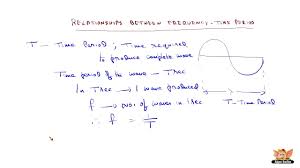 RELATIONSHIPS BETWEEN FREQUENCY - TIME PERIOD
T - Time Period ; Time required
to produce complete wave
Time period of the wave - T sec
In T sec → 1 wave produced
f → no. of waves in 1 sec
T - Time Period
∴ f = 1/T